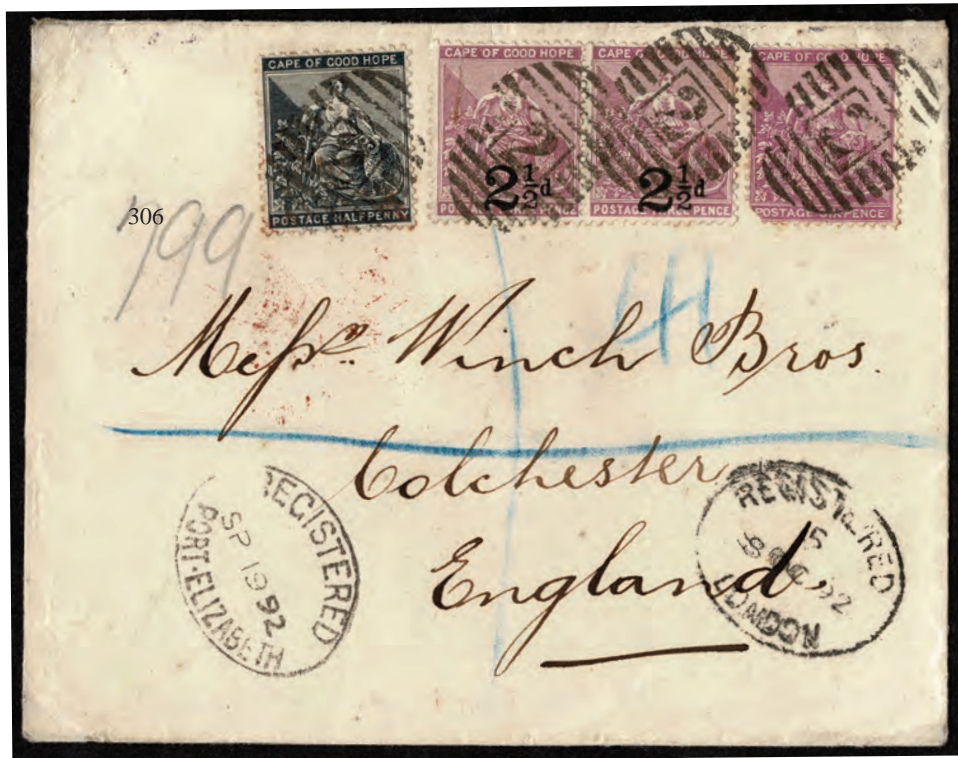 CAPE OF GOOD HOPE
POSTAGE HALFPENNY
CAPE OF GOOD HOPE
2½d
CAPE OF GOOD HOPE
2½d
PENCE
CAPE OF GOOD HOPE
POSTAGE SIXPENCE
306
799
Messrs. Winch Bros.
Colchester
England
REGISTERED
SP 19 92
PORT-ELIZABETH
REGISTERED
92
LONDON